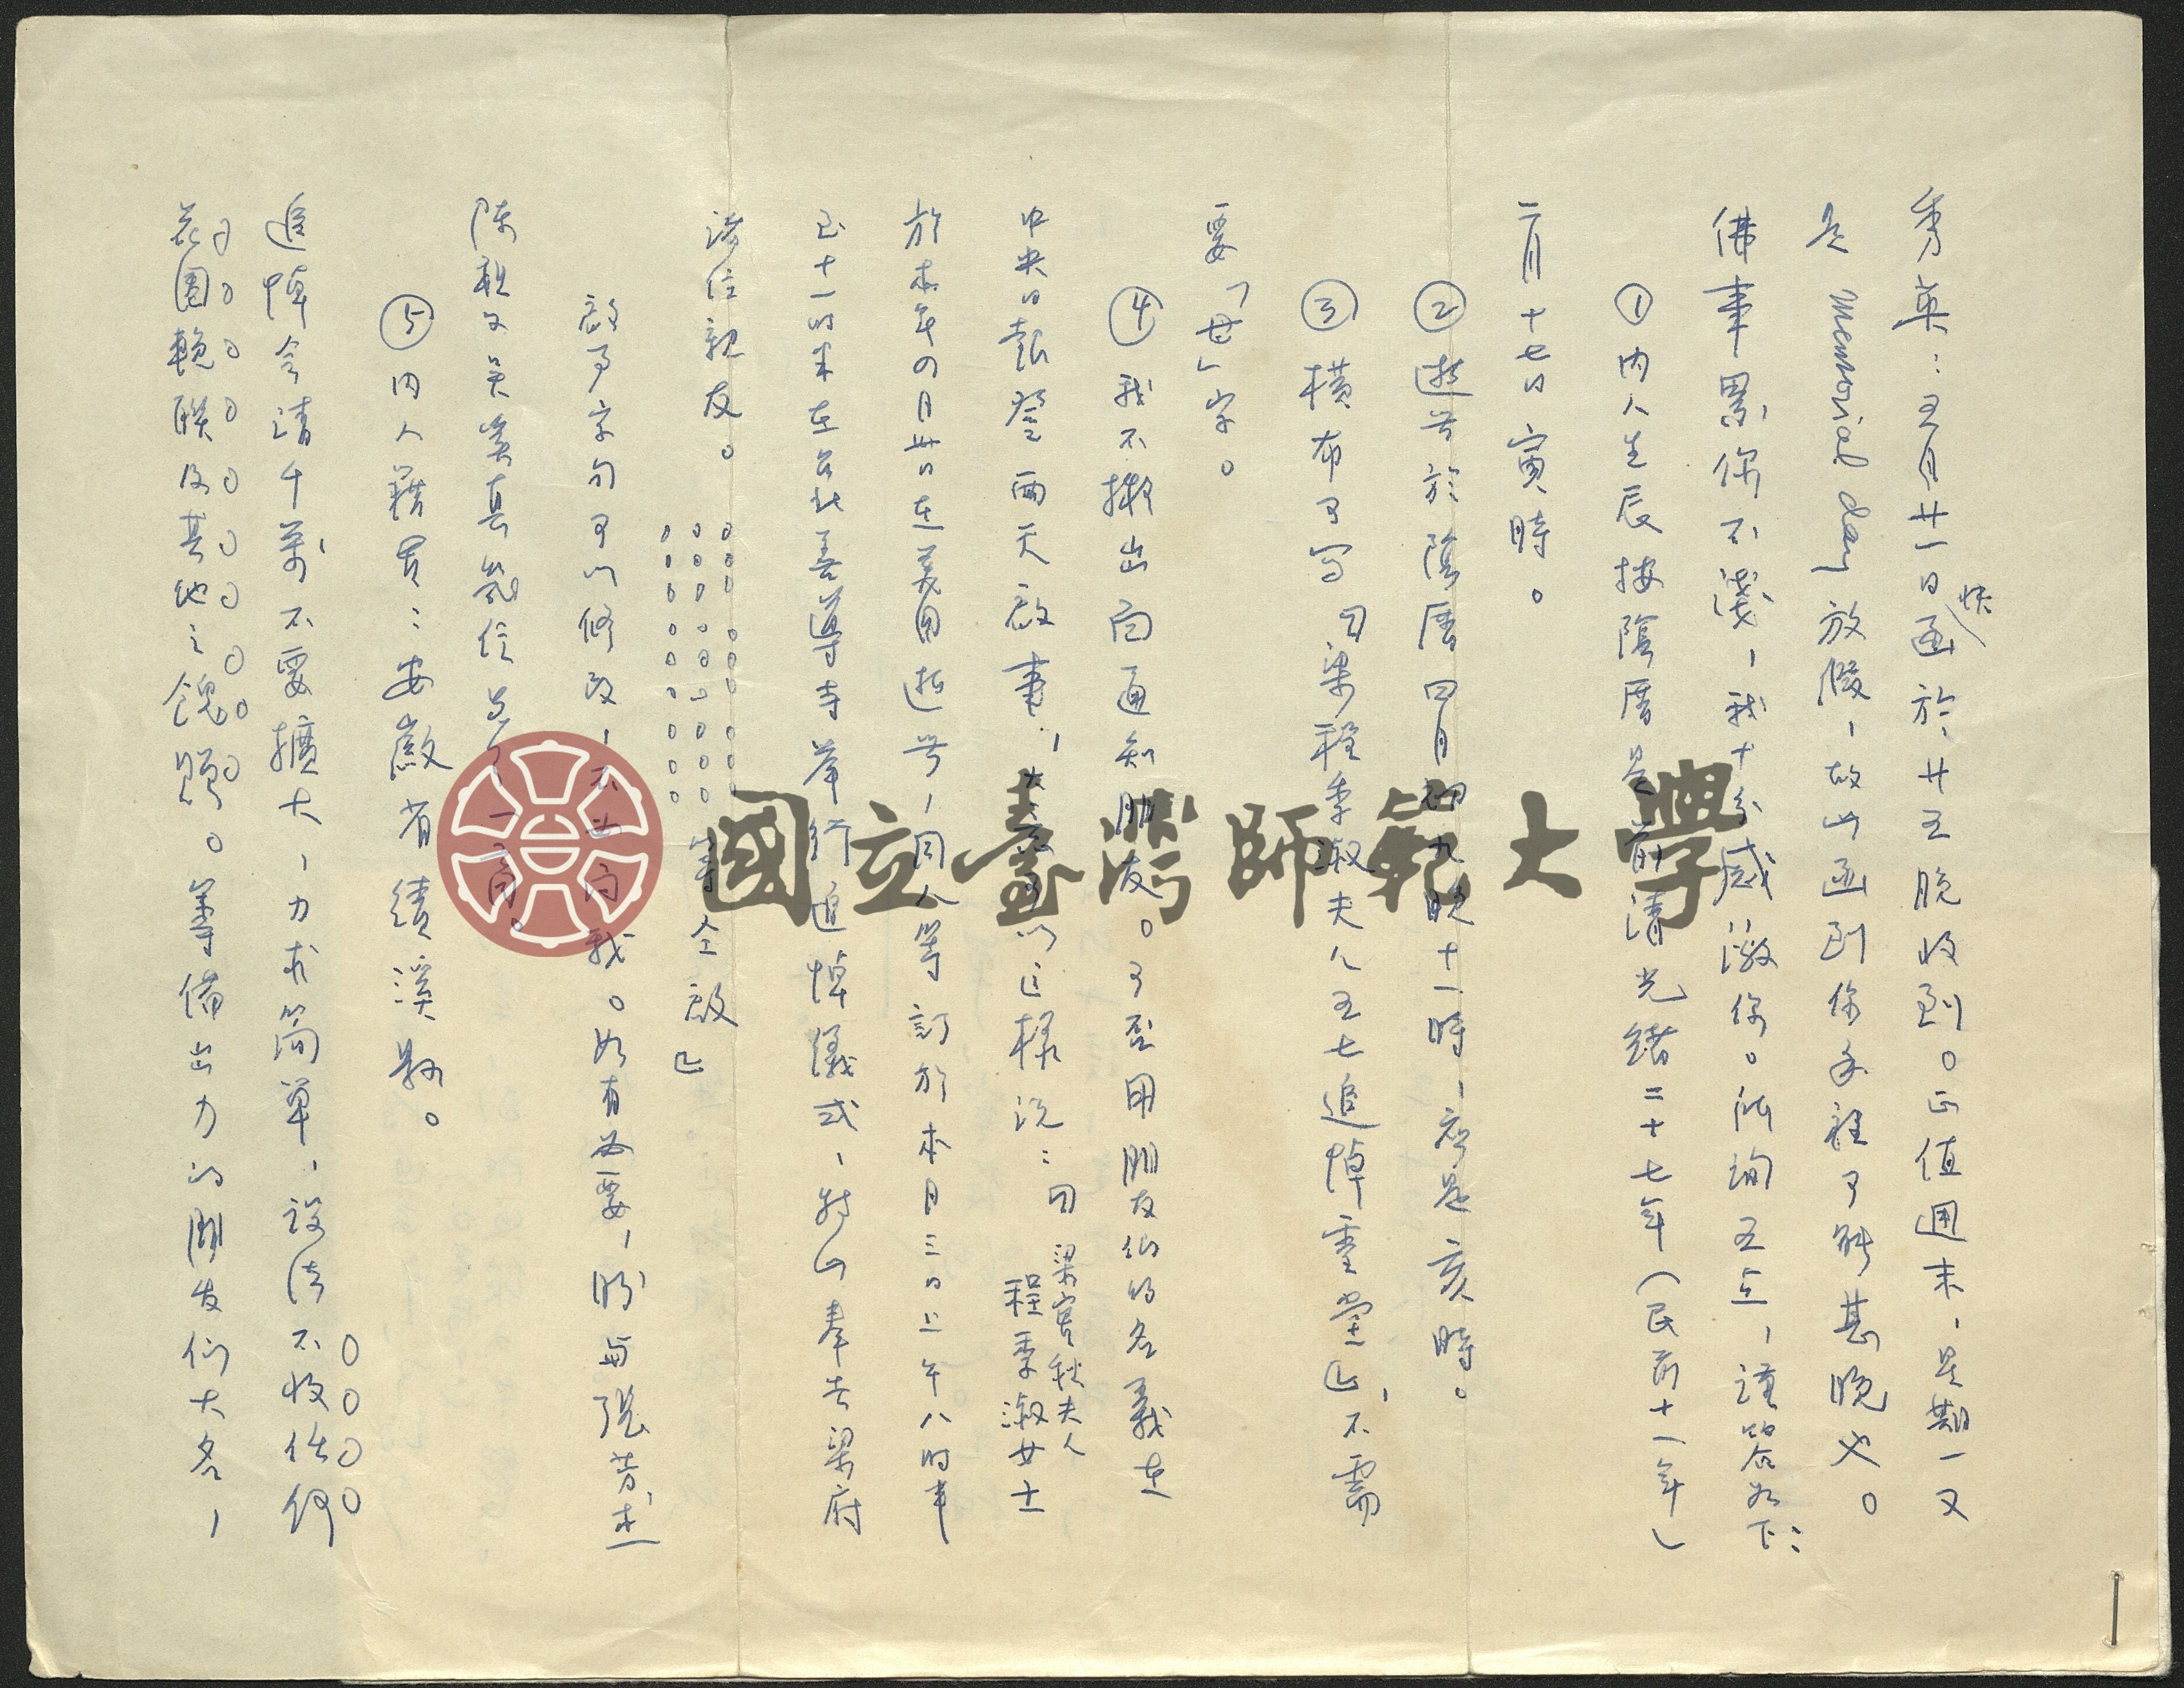 秀英：五月廿一日函於廿五晚收到。正值週末，星期一又
快
是 memorial day 放假，故此函到你手裡可能甚晚也。
佛事累你不淺，我十分感激你。所詢五点，謹答如下：
①內人生辰按陰曆是前清光緒二十七年（民前十一年）
二月十七日寅時。
②逝世於陰曆四月初九晚十一時，應是亥時。
③橫布可寫「梁程季淑夫人五七追悼靈堂」，不需
要「世」字。
④我不擬出面通知朋友。可否用朋友們的名義在
中央日報登兩天啟事，大意可以這樣說：「梁實秋夫人
程季淑女士
於本年四月卅日在美國逝世，同人等訂於本月三日上午八時半
至十一時半在台北善導寺舉行追悼儀式，特此奉告梁府
諸位親友。
○○○○○○○○○等仝啟」
啟事字句可以修改，不必問我。如有必要，盼與張芳杰
陳祖文吳奚真幾位
⑤內人籍貫：安徽省績溪縣。
追悼会請千萬不要擴大，力求簡單，設法不收任何
花圈輓聯及其他之餽贈。籌備出力的朋友們大名，
國立臺灣師範大學